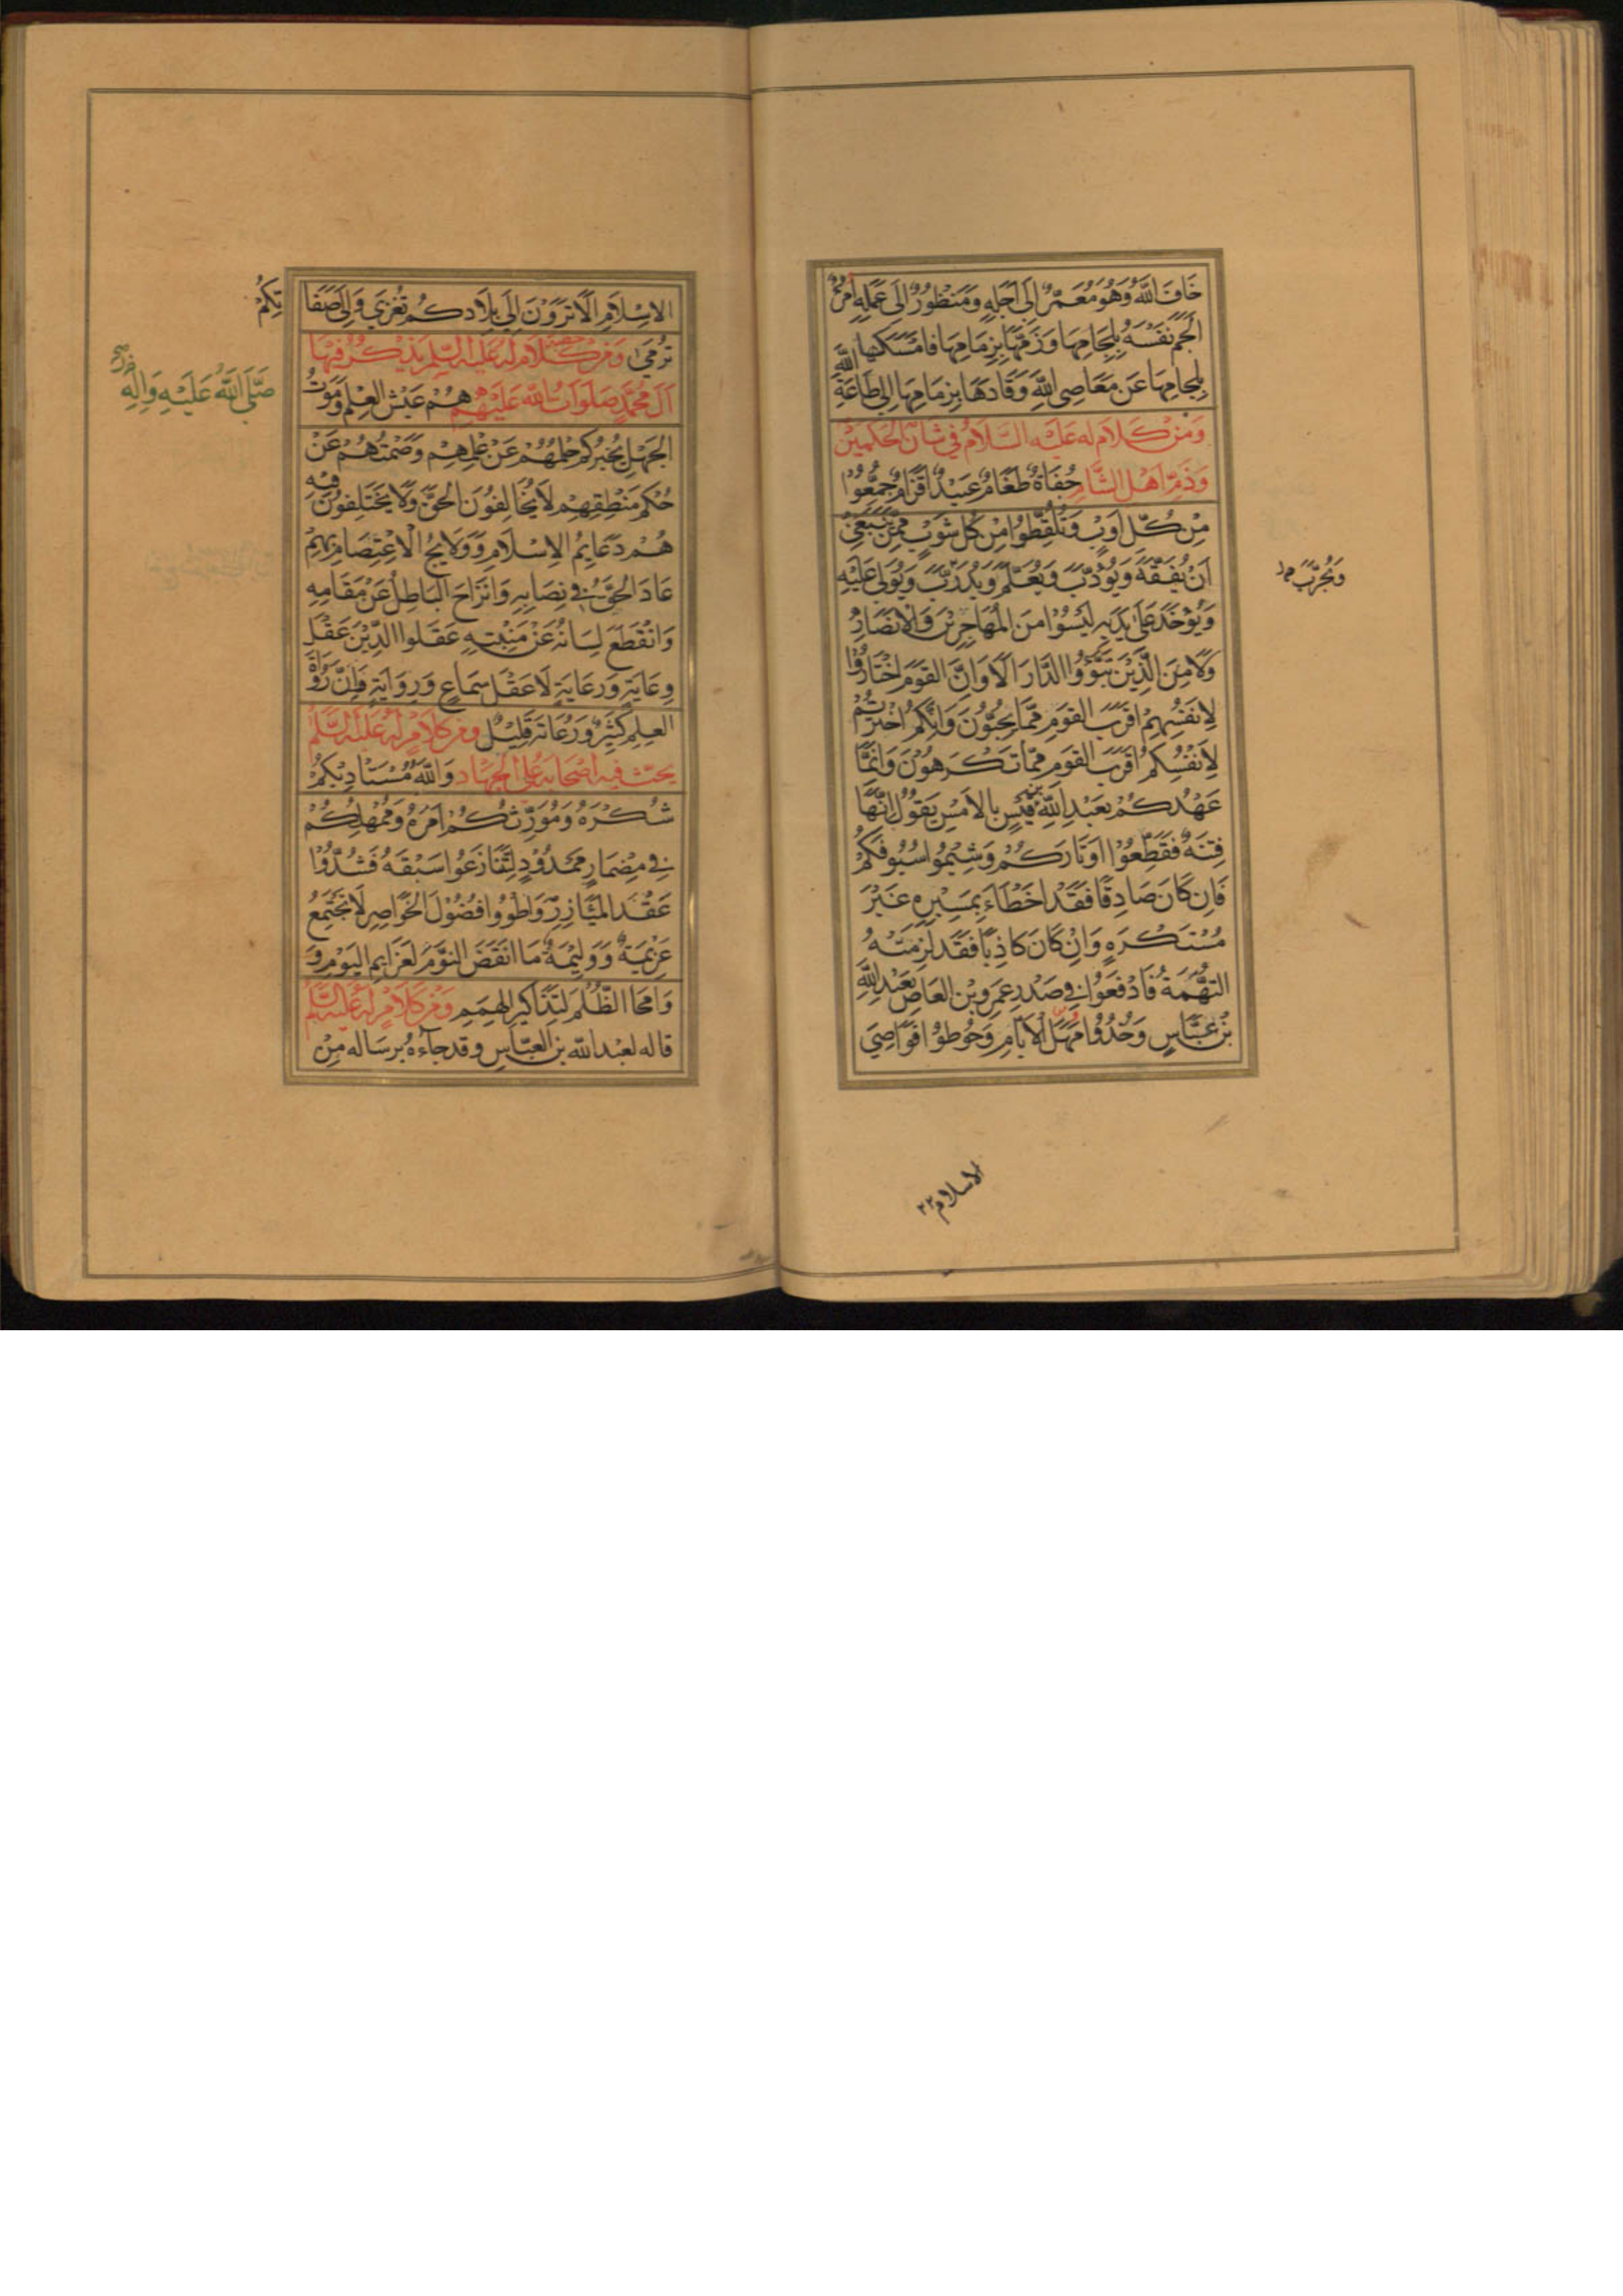 خَافَ اللّٰهَ وَهُوَ مُعَمَّرٌ اِلٰى اَجَلِهِ وَمَنْظُورٌ اِلٰى عَمَلِهِ امْرُؤٌ
اَلْجَمَ نَفْسَهُ بِلِجَامِهَا وَزَمَّهَا بِزِمَامِهَا فَامْسَكَهَا
بِلِجَامِهَا عَنْ مَعَاصِي اللّٰهِ وَقَادَهَا بِزِمَامِهَا اِلٰى طَاعَةِ اللّٰهِ
وَمِنْ كَلَامٍ لَهُ عَلَيْهِ السَّلَامُ فِي شَانِ الْحَكَمَيْنِ
وَذَمِّ اَهْلِ الشَّامِ جُفَاةٌ طَغَامٌ عَبِيْدٌ اَقْزَامٌ جُمِّعُوْا
مِنْ كُلِّ اَوْبٍ وَتُلُقِّطُوا مِنْ كُلِّ شَوْبٍ مِمَّنْ يَنْبَغِيْ
اَنْ يُفَقَّهَ وَيُؤَدَّبَ وَيُعَلَّمَ وَيُدَرَّبَ وَيُوَلّٰى عَلَيْهِ
وَيُؤْخَذَ عَلٰى يَدَيْهِ لَيْسُوْا مِنَ الْمُهَاجِرِيْنَ وَالْاَنْصَارِ
وَلَا مِنَ الَّذِيْنَ تَبَوَّءُوا الدَّارَ اَلَا وَاِنَّ الْقَوْمَ اخْتَارُوْا
لِاَنْفُسِهِمْ اَقْرَبَ الْقَوْمِ مِمَّا يُحِبُّوْنَ وَاِنَّكُمْ اخْتَرْتُمْ
لِاَنْفُسِكُمْ اَقْرَبَ الْقَوْمِ مِمَّا تَكْرَهُوْنَ وَاِنَّمَا
عَهْدُكُمْ بِعَبْدِ اللّٰهِ بْنِ قَيْسٍ بِالْاَمْسِ يَقُوْلُ اِنَّهَا
فِتْنَةٌ فَقَطِّعُوْا اَوْتَارَكُمْ وَشِيْمُوا سُيُوْفَكُمْ
فَاِنْ كَانَ صَادِقًا فَقَدْ اَخْطَاَءَ بِمَسِيْرِهِ غَيْرَ
مُسْتَكْرَهٍ وَاِنْ كَانَ كَاذِبًا فَقَدْ لَزِمَتْهُ
التُّهَمَةُ فَادْفَعُوْا فِي صَدْرِ عَمْرِو بْنِ الْعَاصِ بِعَبْدِ اللّٰهِ
بْنِ عَبَّاسٍ وَخُذُوْا مَهَلَ الْاَيَّامِ وَحُوْطُوْا قَوَاصِيَ
وَيُجَرَّبَ
الاسلام ٢٢
الْاِسْلَامِ اَلَا تَرَوْنَ اِلٰى بِلَادِكُمْ تُغْزٰى وَاِلٰى صَفَا
تِكُمْ
تُرْمٰى وَمِنْ كَلَامٍ لَهُ عَلَيْهِ السَّلَمُ يَذْكُرُ فِيْهَا
اٰلَ مُحَمَّدٍ صَلَوَاتُ اللّٰهِ عَلَيْهِمْ هُمْ عَيْشُ الْعِلْمِ وَمَوْتُ
صَلَّى اللّٰهُ عَلَيْهِ وَاٰلِهِ
الْجَهْلِ يُخْبِرُكُمْ حِلْمُهُمْ عَنْ عِلْمِهِمْ وَصَمْتُهُمْ عَنْ
حُكْمِ مَنْطِقِهِمْ لَا يُخَالِفُوْنَ الْحَقَّ وَلَا يَخْتَلِفُوْنَ فِيْهِ
هُمْ دَعَايِمُ الْاِسْلَامِ وَوَلَايِجُ الْاِعْتِصَامِ بِهِمْ
عَادَ الْحَقُّ فِي نِصَابِهِ وَانْزَاحَ الْبَاطِلُ عَنْ مَقَامِهِ
وَانْقَطَعَ لِسَانُهُ عَنْ مَنْبِتِهِ عَقَلُوا الدِّيْنَ عَقْلَ
وِعَايَةٍ وَرِعَايَةٍ لَا عَقْلَ سَمَاعٍ وَرِوَايَةٍ فَاِنَّ رُوَاةَ
الْعِلْمِ كَثِيْرٌ وَرُعَاتَهُ قَلِيْلٌ وَمِنْ كَلَامٍ لَهُ عَلَيْهِ السَّلَمُ
يَحُثُّ فِيْهِ اَصْحَابَهُ عَلَى الْجِهَادِ وَاللّٰهُ مُسْتَادِيْكُمْ
شُكْرَهُ وَمُوَرِّثُكُمْ اَمْرَهُ وَمُمْهِلُكُمْ
فِي مِضْمَارٍ مَمْدُوْدٍ لِتَتَنَازَعُوا سَبْقَهُ فَشُدُّوْا
عُقَدَ الْمَئَازِرِ وَاطْوُوا فُضُوْلَ الْخَوَاصِرِ لَا تَجْتَمِعُ
عَزِيْمَةٌ وَوَلِيْمَةٌ مَا اَنْقَضَ النَّوْمَ لِعَزَايِمِ الْيَوْمِ وَ
وَاَمْحَا الظُّلَمَ لِتَذَاكِيْرِ الْهِمَمِ وَمِنْ كَلَامٍ لَهُ عَلَيْهِ السَّلَمُ
قاله لعبد الله بن العبّاس وقد جاءه برساله مِنْ